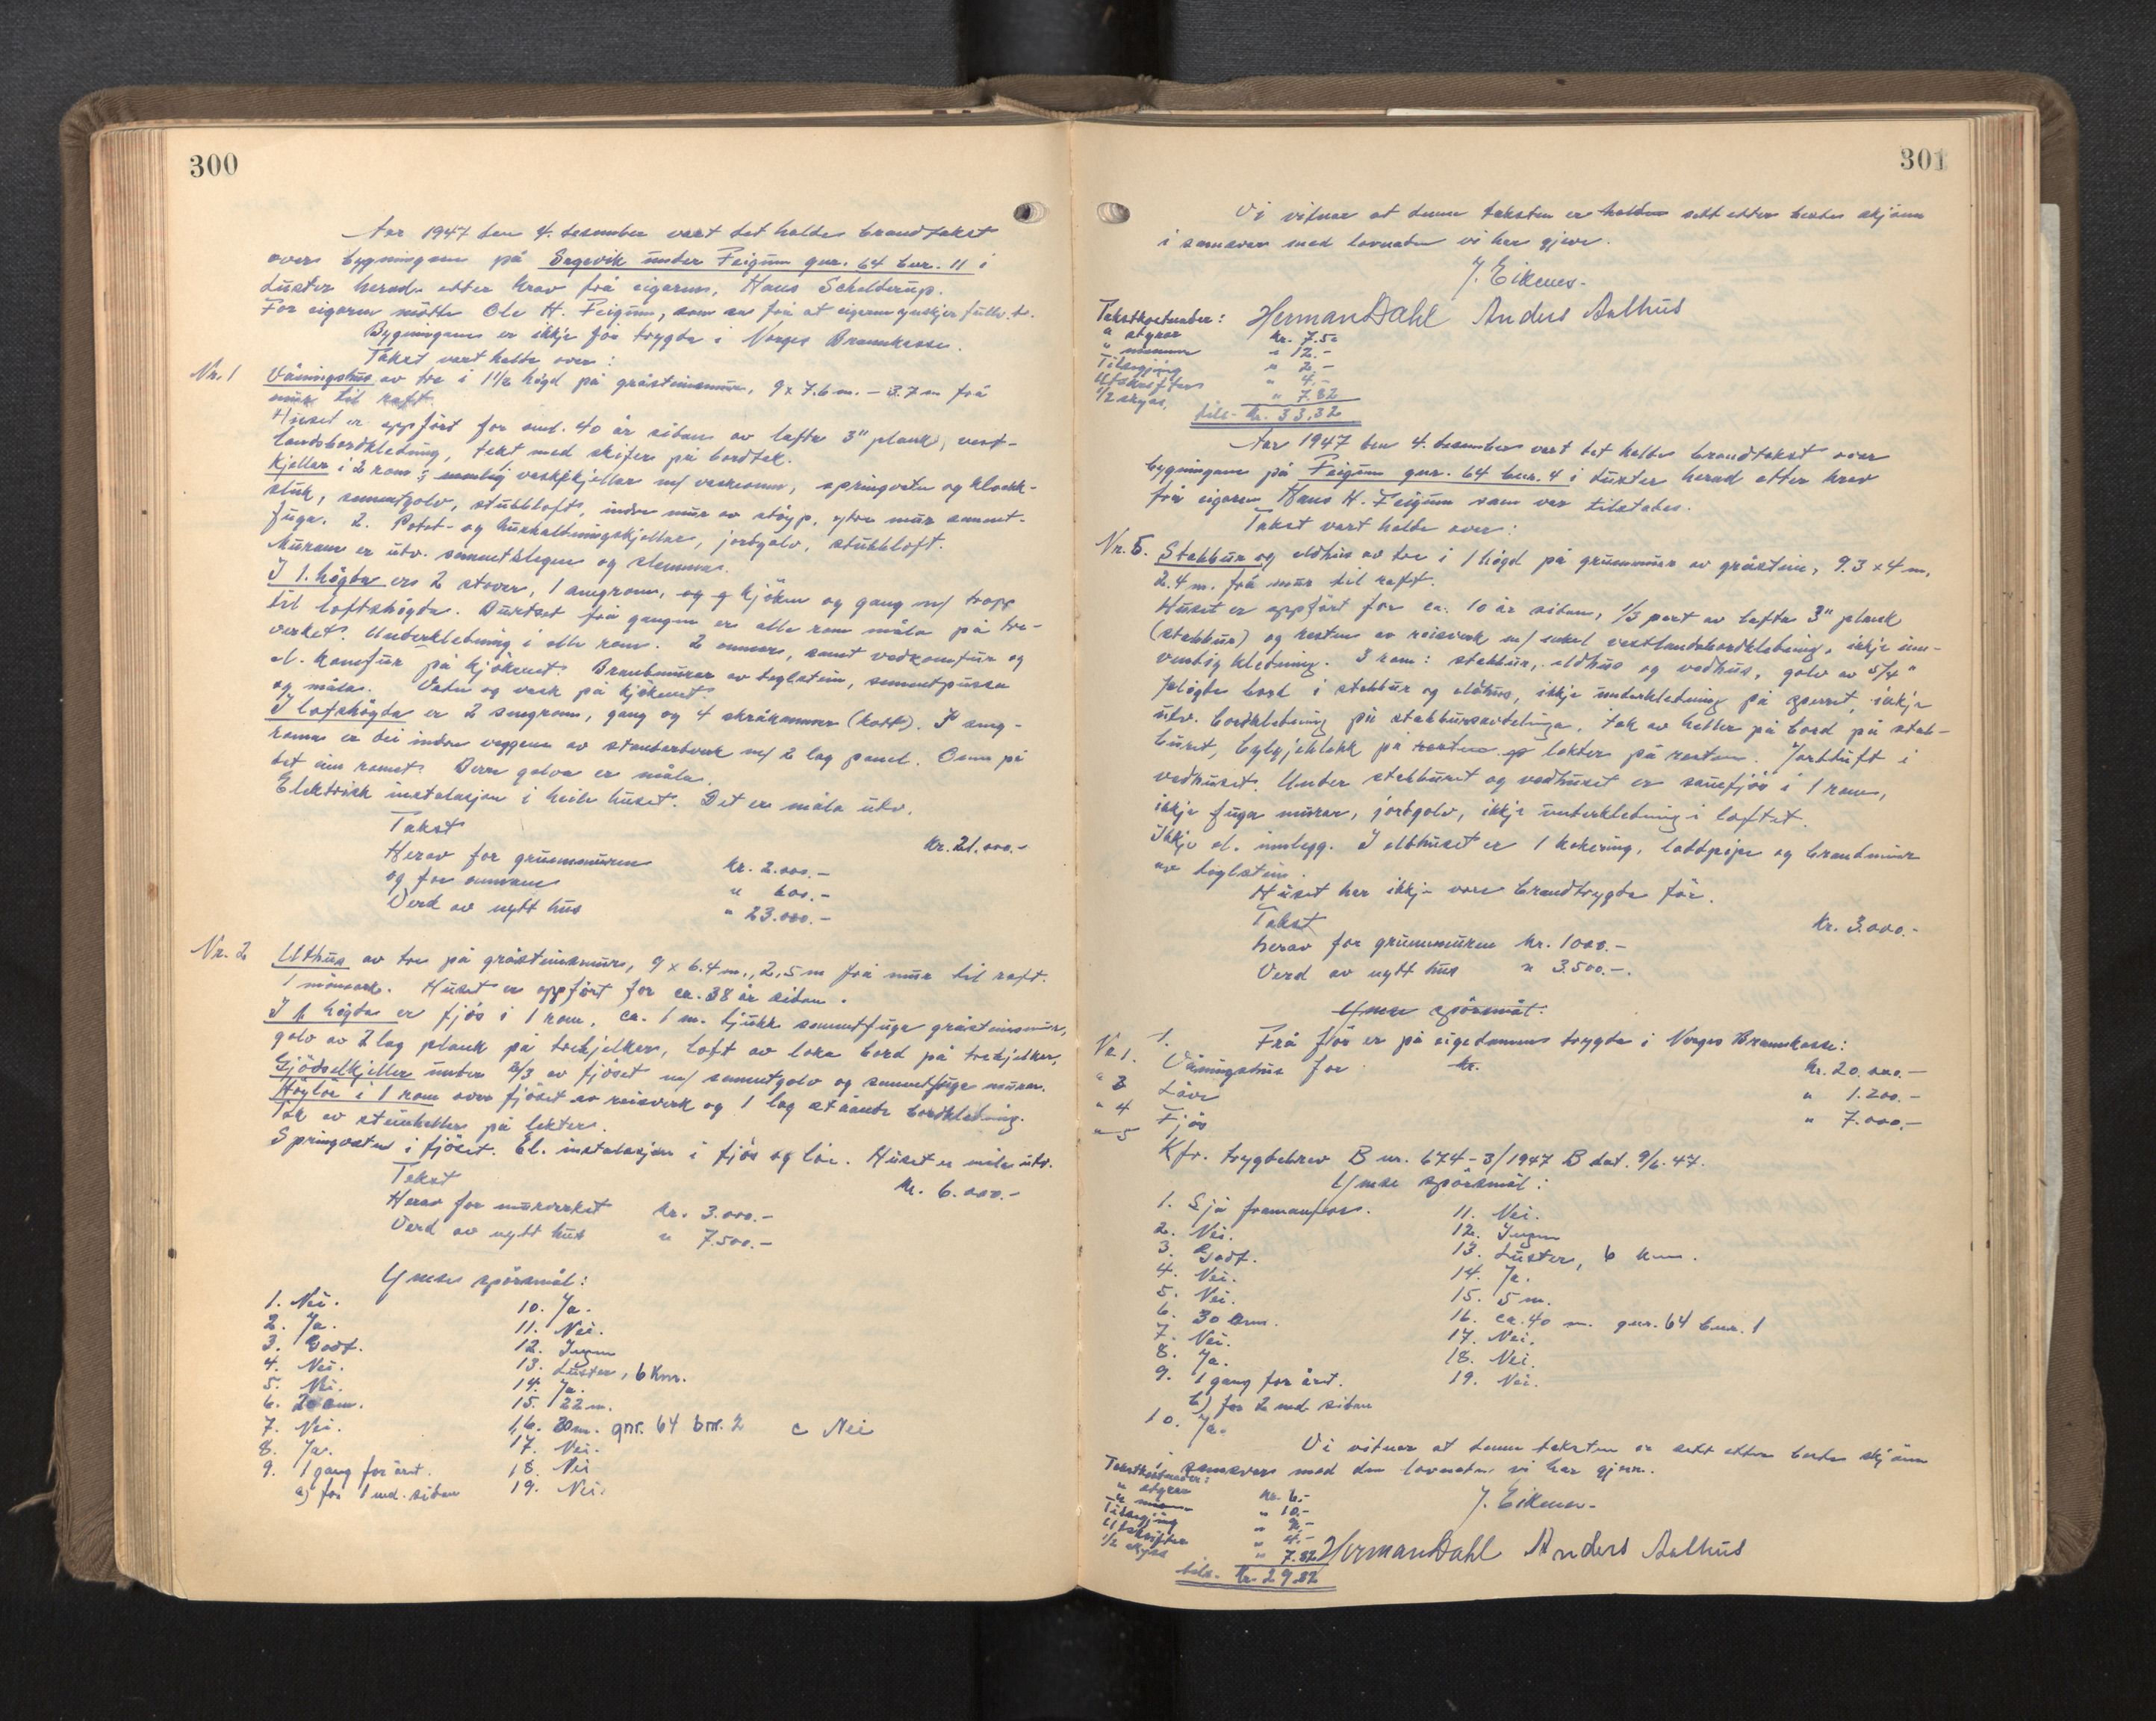 300
Aar 1947 den 4. desember vart det halde brandtakst
over bygningane på Segevik under Feigum gnr. 64 bnr. 11 i
Luster herad etter krav frå eigaren, Hans Schelderup.
For eigaren møtte Ole H. Feigum, som sa frå at eigaren ynskjer fullv. t.
Bygningane er ikkje før trygda i Norges Brannkasse.
Takst vart halde over:
Nr. 1 Våningshus av tre i 1 1/2 høgd på gråsteinsmur, 9 x 7.6 m. – 3.7 m frå
mur til raft.
Huset er oppført for oml. 40 år sidan av lafta 3" plank, vest-
landsbordkledning, tekt med skifer på bordtak.
Kjellar i 2 rom: vaskekjellar m/ , springvatn og klokk-
sluk, sementgolv, stubbloft, indre mur av støyp, ytre mur sement-
fuga. 2. Potet- og hushaldningskjellar, jordgolv, stubbloft.
Murane er utv. sementslegne og slemma.
I 1. høgda er 2 stover, 1 sengrom, kjøken og gang m/ tropp
til loftshøgda. Burtset frå gangen er alle rom måla på tre-
verket. Underkledning i alle rom. 2 omnar, samt vedkomfur og
el. komfur på kjøkenet. Brandmurar av teglstein, sementpussa
og måla. Vatn og vask på kjøkenet.
I loftshøgda er 2 sengrom, gang og 4 skråkammer (kott). I seng-
romma er dei indre veggene av standardverk m/ 2 lag panel. Omn på
det eine romet. Desse golva er måla.
Elektrisk installasjon i heile huset. Det er måla utv.
Takst kr. 21.000.-
Herav for grunnmuren kr. 2.000.-
og for omnane " 600.-
Verd av nytt hus " 23.000.-
Nr. 2 Uthus av tre på gråsteinsmur, 9 x 6.4 m., 2,5 m frå mur til raft.
1 mønsark. Huset er oppført for ca. 38 år sidan.
I 1. høgda er fjøs i 1 rom, ca. 1 m. tjukk sementfuga gråsteinsmur,
golv av 2 lag plank på trebjelker, loft av lose bord på trebjelker.
Gjødselkjellar under 2/3 av fjøset m/ sementgolv og sementfuga murar.
Høyløe i 1 rom over fjøset av reisverk og 1 lag ståande bordkledning.
Tak av steinheller på lekter.
Springvatn i fjøset. El. installasjon i fjøs og løe. Huset er måla utv.
Takst kr. 6.000.-
Herav for murverket kr. 3.000.-
Verd av nytt hus " 7.500.-
Ymse spørsmål:
1. Nei. 10. Ja.
2. Ja. 11. Nei.
3. Godt. 12. Ingen
4. Nei. 13. Luster, 6 km.
5. Nei. 14. Ja.
6. 20 cm. 15. 22 m.
7. Nei. 16. 20 m. gnr. 64 bnr. 2 c Nei
8. Ja. 17. Nei.
9. 1 gang for året. 18. Nei
a) for 1 md. sidan 19. Nei.
301
Vi vitnar at denne taksten er sett etter beste skjønn
i samsvar med lovnaden vi har gjeve.
J. Eikenes.
Herman Dahl Anders Aalhus
Takstkostnader:
" styrar kr. 7.50
" mennene " 12.-
Tilsegjing " 2.-
Utskrifter " 4.-
1/2 skyss, " 7.82
tils. kr. 33,32
Aar 1947 den 4. desember vart det halde brandtakst over
bygningane på Feigum gnr. 64 bnr. 4 i Luster herad etter krav
frå eigaren Hans H. Feigum som var tilstades.
Takst vart halde over:
Nr. 5. Stabbur og eldhus av tre i 1 høgd på grunnmur av gråstein, 9.3 x 4 m,
2.4 m. frå mur til raft.
Huset er oppført for ca. 10 år sidan, 1/3 part av lafta 3" plank
(stabbur) og resten av reisverk m/ enkel vestlandsbordkledning, ikkje inn-
vendig kledning. 3 rom: stabbur, eldhus og vedhus, golv av 5/4"
pløgde bord i stabbur og eldhus, ikkje underkledning på sperret, ikkje
utv. bordkledning på stabbursavdelinga, tak av heller på bord på stab-
buret, bylgjeblekk på lekter på resten. Jordtuft i
vedhuset. Under stabburet og vedhuset er sauefjøs i 1 rom,
ikkje fuga murar, jordgolv, ikkje underkledning i loftet.
Ikkje el. innlegg. I eldhuset er 1 kokering, laddpipe og brandmur
av teglstein.
Huset har ikkje vore brandtrygda før.
Takst kr. 3.000.-
herav for grunnmuren kr. 1000.-
Verd av nytt hus " 3.500.-.
Ymse spørsmål:
1. Frå før er på eigedommen trygda i Norges Brannkasse:
Nr. 1. Våningshus for kr. kr. 20.000.-
" 3 Løve " 1.200.-
" 4 Fjøs " 7.000.-
" 5
Kfr. trygdebrev B nr. 674-3/1947 B dat. 9/6.47.
Ymse spørsmål:
1. Sjå framanfor. 11. Nei.
2. Nei. 12. Ingen
3. Godt. 13. Luster, 6 km.
4. Nei. 14. Ja.
5. Nei. 15. 5 m.
6. 30 cm. 16. ca. 40 m. gnr. 64 bnr. 1
7. Nei. 17. Nei.
8. Ja. 18. Nei.
9. 1 gang for året. 19. Nei.
b) for 2 md. sidan
10. Ja.
Vi vitnar at denne taksten er sett etter beste skjønn
i samsvar med den lovnaden vi har gjeve.
J. Eikenes.
Herman Dahl Anders Aalhus
Takstkostnader:
" styrar kr. 6.-
" menn " 10.-
Tilsegjing " 2.-
Utskrifter " 4.-
1/2 skyss " 7.82
tils. kr. 29.82